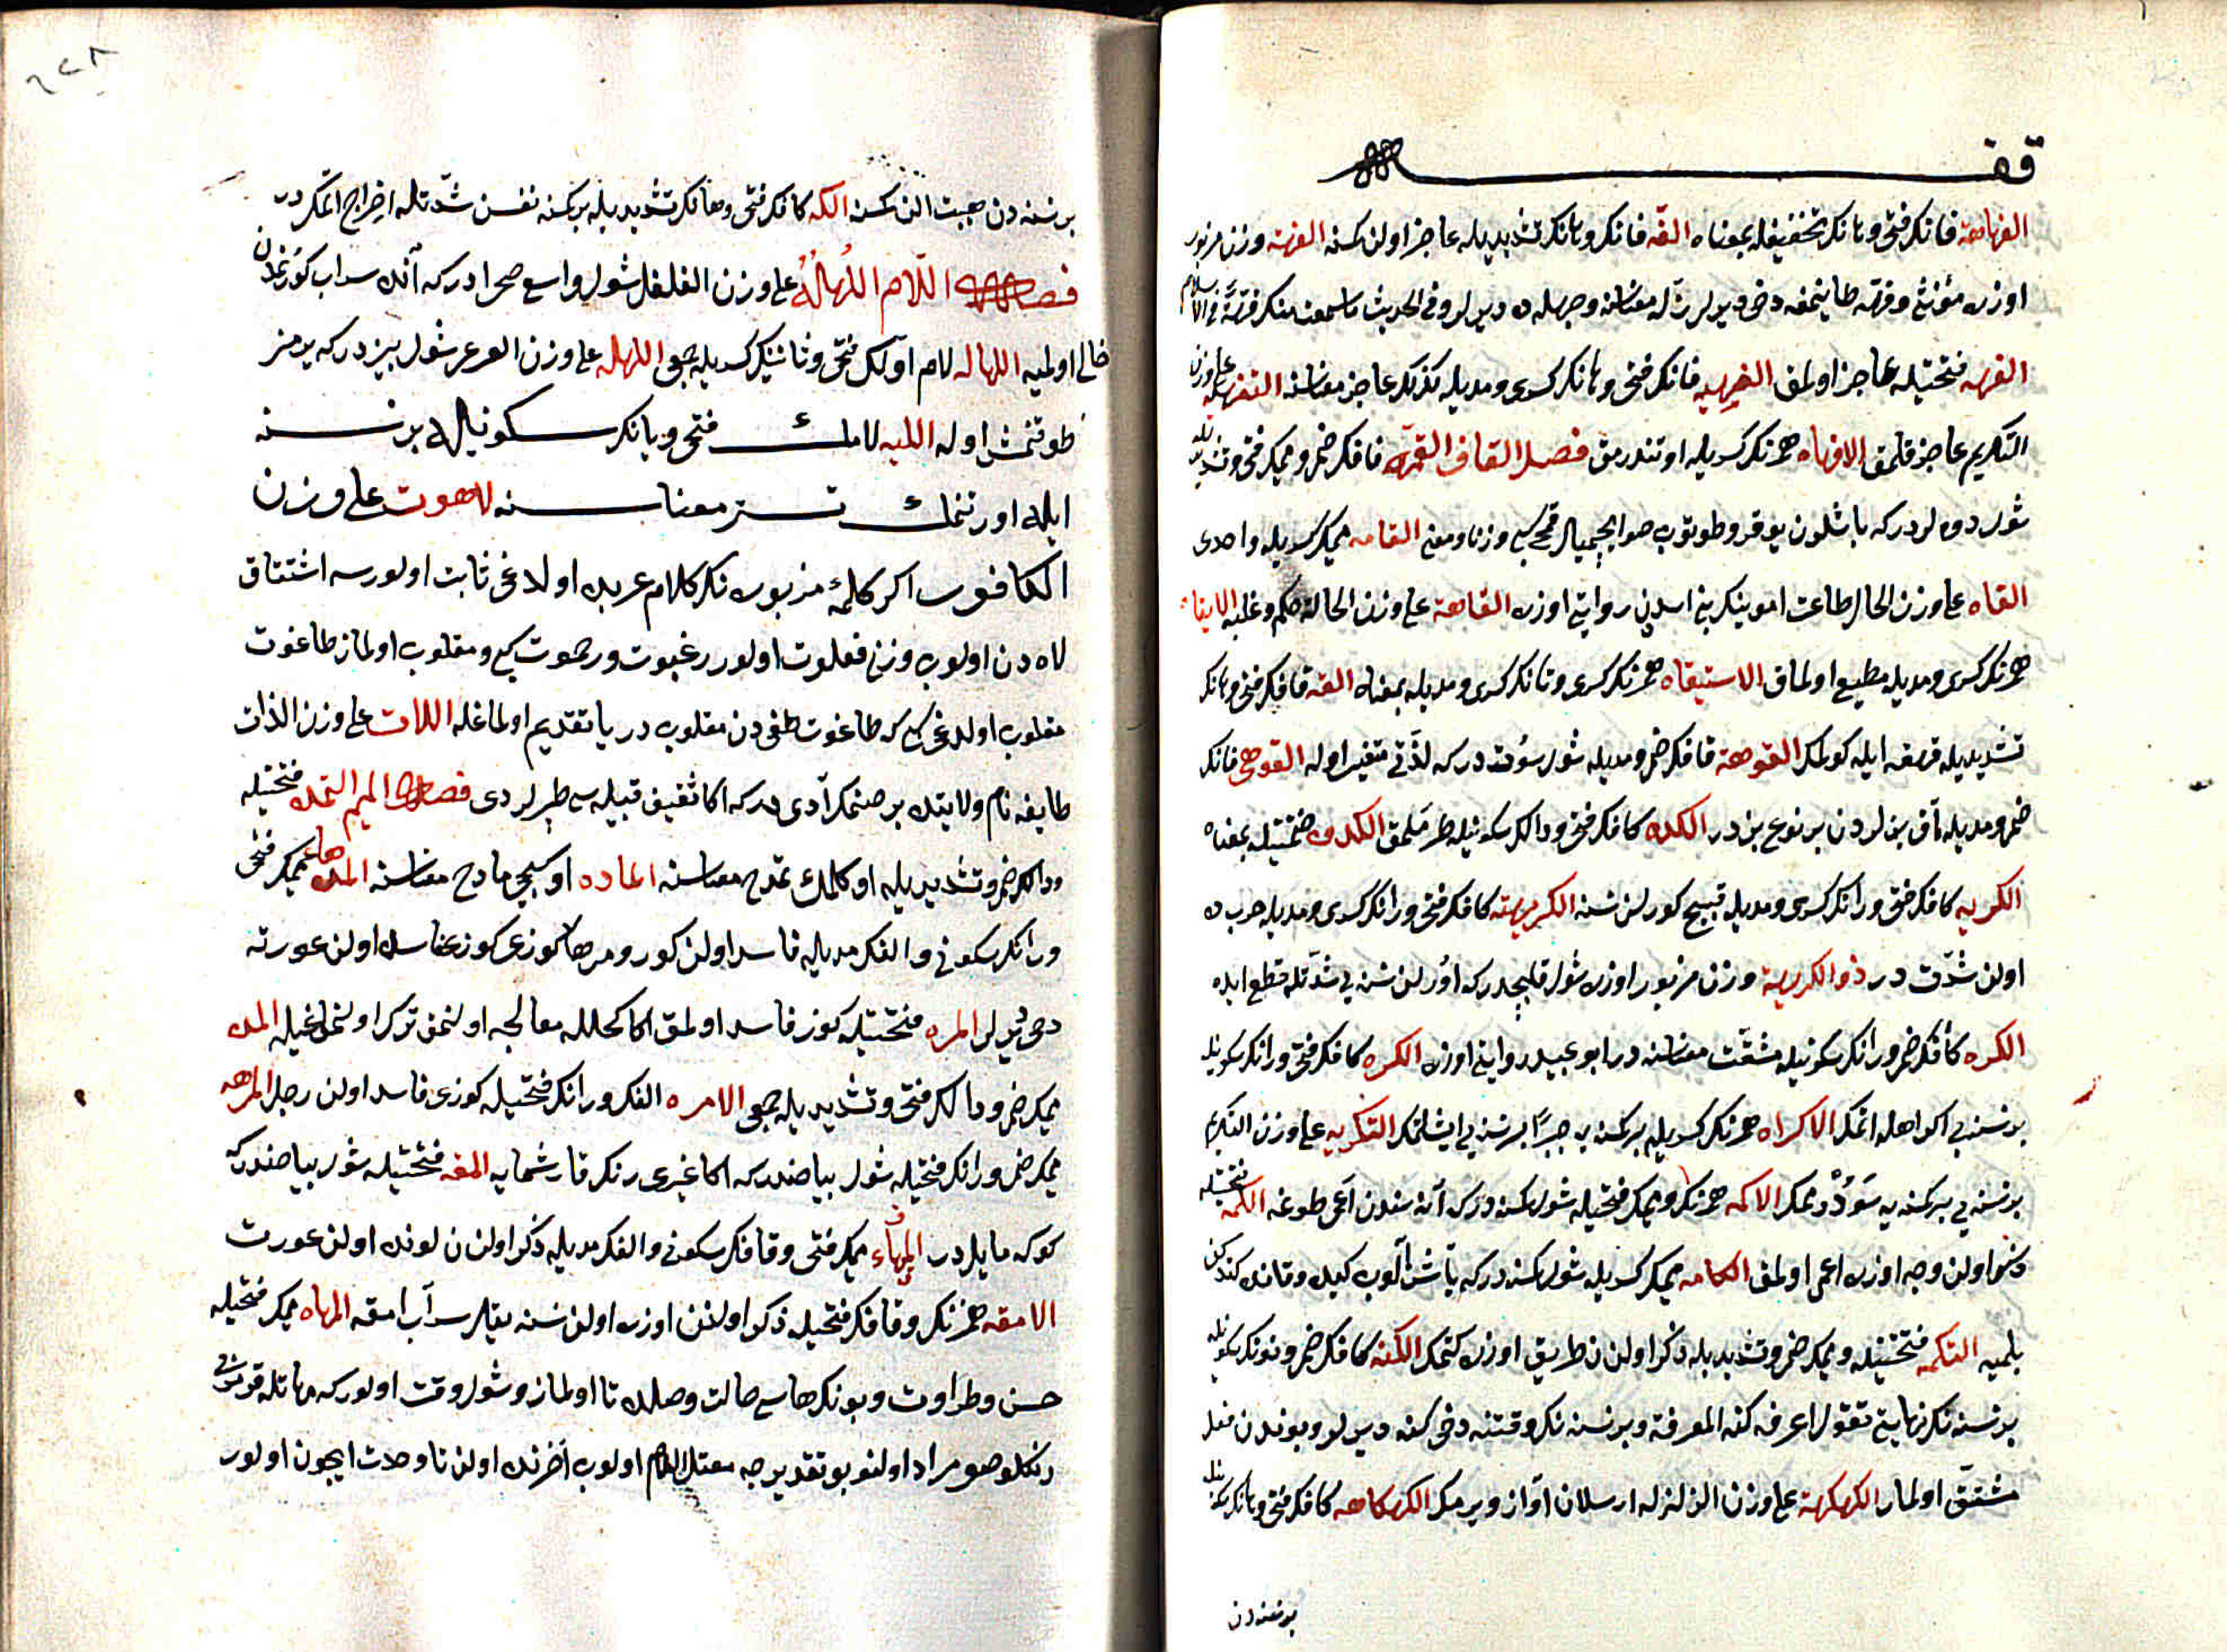 قفـ
الفهاهة فانك فتحى وهانك تخفيفيله بمعناه الفه فانك وهانك تشديديله عاجز اولن كسنه الفهه وزن مزبور
اوزره مؤنثى وفهه طاينمغه دخى ديرلر زله معناسنه وجهله ده ديرلر وفى الحديث ما سمعت منك فهة فى الاسلام
الفهه فتحتيله عاجز اولمق الفهيه فانك فتحى وهانك كسرى ومديله كذلك عاجز معناسنه التفهيه على وزن
التكريم عاجز قلمق الافهاه همزنك كسريله اوتندرمق فصل القاف القمه قافك ضمى وميمك فتحى وتشديديله
شول دوه لردر كه باشلرن يوقرو طوتوب صو ايچميالر قمح كبى وزنا ومعنى القامه ميمك كسريله واحدى
القاه على وزن الحال طاعت اموينك بنى اسد روايتى اوزره القاهة على وزن الحالة حكم وغلبه الايقاه
همزنك كسرى ومديله مطيع اولمق الاستيقاه همزنك كسرى وتانك كسرى ومديله بمعناه القه قافك فتحى وهانك
تشديديله قهقهه ايله كولمك القوهة قافك ضمى ومديله شول سوتدر كه لذتى متغير اوله القوهى قافك
ضمى ومديله آق بزلردن بر نوع بزدر الكده كافك فتحى ودالك سكونيله طرملمق الكدوه ضمتيله بمعناه
الكريه كافك فتحى ورانك كسرى ومديله قبيح كورلن نسنه الكريهة كافك فتحى ورانك كسرى ومديله حربده
اولن شدت در ذو الكريهة وزن مزبور اوزره شول قليجدر كه اورلن نسنه يى شدتله قطع ايده
الكره كافك ضمى ورانك سكونيله مشقت معناسنه در ابو عبيد روايتى اوزره الكره كافك فتحى ورانك سكونيله
بر نسنه يى اكراهله اتمك الاكراه همزنك كسريله بر كسنه يه جبرا بر نسنه يى ايشلتمك التكريه على وزن التكريم
بر نسنه يى بر كسنه يه سودرممك الاكمه همزنك وميمك فتحيله شول كسنه در كه آنه سندن اعمى طوغه الكمه فتحتيله
ذكر اولن وجه اوزره اعمى اولمق الكامه ميمك كسريله شول كسنه در كه باشن آلوب كيده وقانده كندكن
بلميه التكمه فتحتيله وميمك ضمى وتشديديله ذكر اولنن طريق اوزره كتمك الكنه كافك ضمى ونونك سكونيله
بر نسنه نك نهايتى تقول اعرفه كنه المعرفة وبر نسنه نك وقتنه دخى كنه ديرلر وبوندن فعل
مشتق اولماز الكهكهة على وزن الزلزله ارسلان آواز ويرمك الكهكاهه كافك فتحى وهانك سكونيله
بر نسنه دن
٦٢٨
بر نسنه دن هيبت النن كسنه الكه كافك فتحى وهانك تشديديله بر كسنه نفسن شدتله اخراج اتمكدر
فصل اللام اللهله على وزن الفلفل شول واسع صحرادر كه آنده سراب كورنمكدن
خالى اولميه اللهاله لام اولك فتحى وثانينك كسريله جمعى اللهله على وزن العرعر شول بيزدر كه يرمز
طوقنمش اوله الليه لامك فتحى ويانك سكونيله بر نسنه
ايله اورتنمك تستر معناسنه لاهوت على وزن
الكافور اكر كلمه مزبوره نك كلام عربده اولدغى ثابت اولورسه اشتقاق
لاه دن اولوب وزنى فعلوت اولور رغبوت ورهبوت كبى ومقلوب اولماز طاغوت
مقلوب اولدغى كبى كه طاغوت طغى دن مقلوب در يا تقديم اولماغله اللات على وزن الذات
طايفه نام ولايتده بر صنمك آدى در كه اكا ثقيف قبيله سى طپرلردى فصل الميم التمده فتحتيله
ودالك ضمى وتشديديله اوكلمك تمدح معناسنه الماده اوكيجى مادح معناسنه المرهاء ميمك فتحى
ورانك سكونى والفك مديله فاسد اولن كوز ومرها كوزى كوزى فاسد اولن عورته
دخى ديرلر المره فتحتيله كوز فاسد اولمق اكا كحلله معالجه اولنمق ترك اولنماغيله المده
ميمك ضمى ودالك فتحى وتشديديله جمعى الامره الفك ورانك فتحيله كوزى فاسد اولن رجل المرهه
ميمك ضمى ورانك فتحيله شول بياضدر كه اكا غيرى رنك قارشمايه المقه فتحتيله شول بياضدر كه
كوكه مايلدر المهقاء ميمك فتحى وقافك سكونى والفك مديله ذكر اولنن لونده اولن عورت
الامقه همزنك وقافك فتحيله ذكر اولنن اوزره اولن نسنه يقال سراب امقه المهاه ميمك فتحيله
حسن وطراوت وبونك هاسى حالت وصلده تا اولماز وشول وقت اولور كه مهاتله قوشى
رنكلو صو مراد اولنو بو تقديرجه معتل اللام اولوب آخرنده اولن تا وحدت ايچون اولور